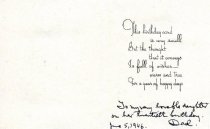 This birthday card
is very small
But the thought
that it conveys
Is full of wishes—
warm and true
For a year of happy days
To my very lovable daughter
on her twentieth birthday.
Dad
June 5, 1946.